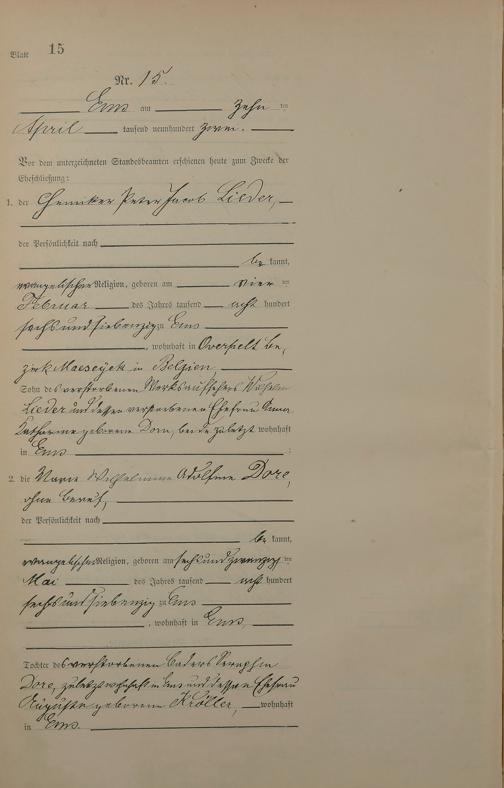 Blatt 15
Nr. 15.
Ems am zehn ten
April tausend neunhundert zwei.
Vor dem unterzeichneten Standesbeamten erschienen heute zum Zwecke der
Eheschließung:
1. der Chemiker Peter Jacob Lieder,
der Persönlichkeit nach
be kannt,
evangelischer Religion, geboren am vier ten
Februar des Jahres tausend acht hundert
sechs und siebenzig zu Ems
, wohnhaft in Overpelt be,
zirk Maeseyck in Belgien,
Sohn des verstorbenen Werksaufsehers
Lieder und dessen verstorbenen Ehefrau Anna
Katharina geborene Dorn, beide zuletzt wohnhaft
in Ems ;
2. die Marie Wilhelmine Adolfine Dore,
ohne Beruf,
der Persönlichkeit nach
be kannt,
evangelischer Religion, geboren am sechs und zwanzig ten
Mai des Jahres tausend acht hundert
sechs und siebenzig zu Ems
, wohnhaft in Ems,
Tochter des verstorbenen Baders Seraphin
Dore, zuletzt wohnhaft in Ems und dessen Ehefrau
Auguste geborene Kröller, wohnhaft
in Ems.